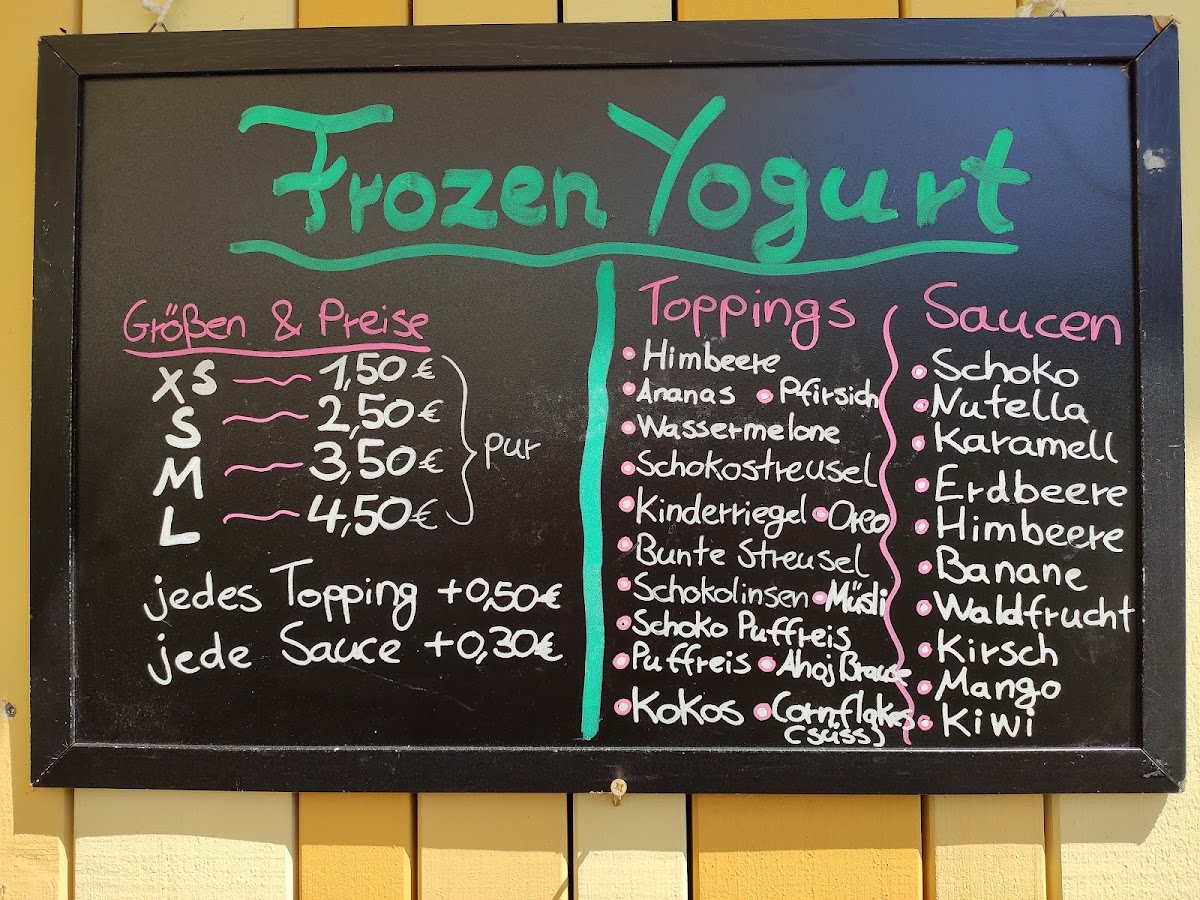 Frozen Yogurt
Größen & Preise
XS 1,50 €
S 2,50 €
M 3,50 €
L 4,50 €
pur
jedes Topping +0,50€
jede Sauce +0,30€
Toppings
Himbeere
Ananas Pfirsich
Wassermelone
Schokostreusel
Kinderriegel Oreo
Bunte Streusel
Schokolinsen Müsli
Schoko Puffreis
Puffreis Ahoj Brause
Kokos Cornflakes
(süss)
Saucen
Schoko
Nutella
Karamell
Erdbeere
Himbeere
Banane
Waldfrucht
Kirsch
Mango
Kiwi